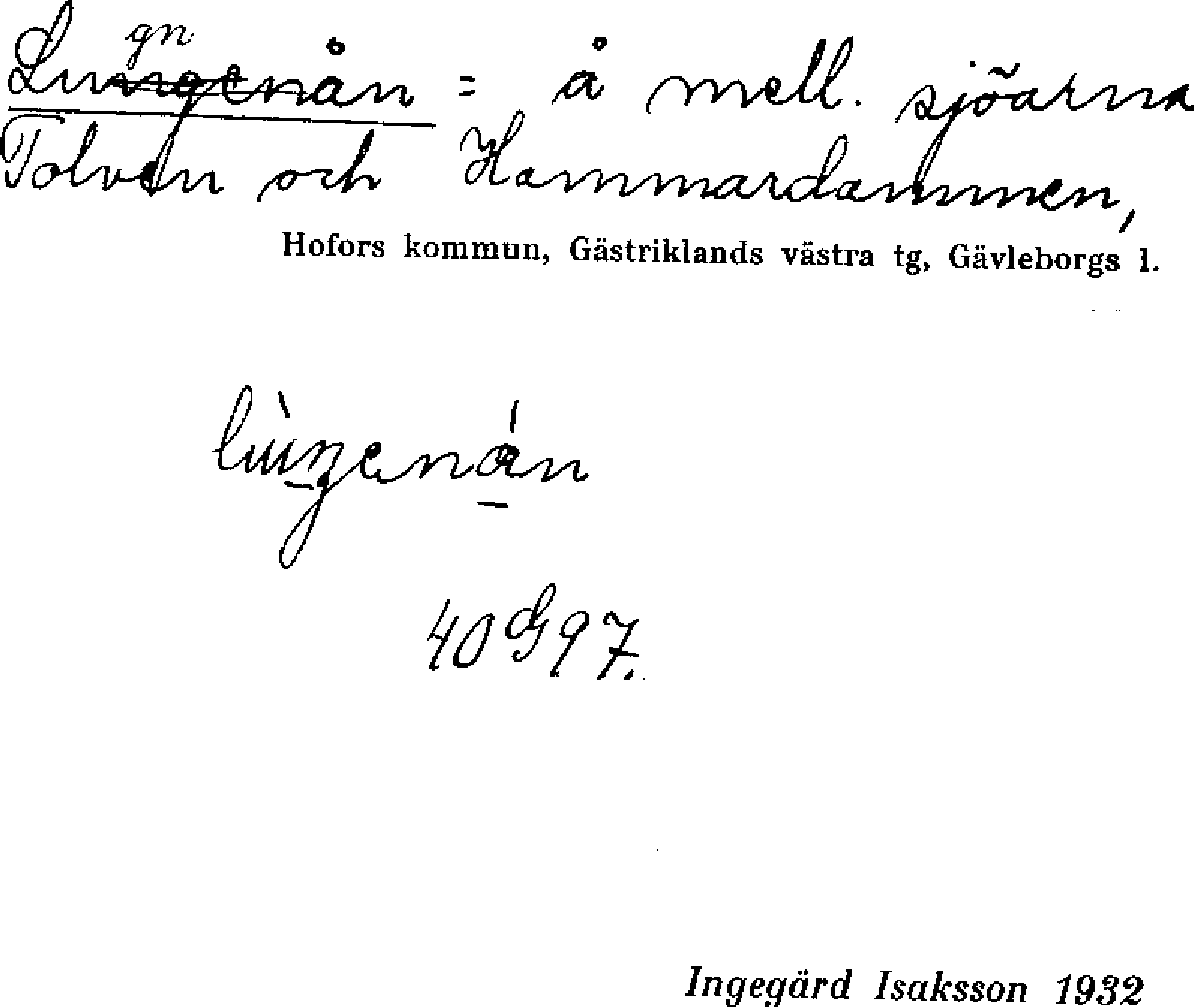 Lungenån = å mell. sjöarna
gn
Tolven och Hammardammen,
Hofors kommun, Gästriklands västra tg, Gävleborgs l.
40 G 97.
Ingegärd Isaksson 1932